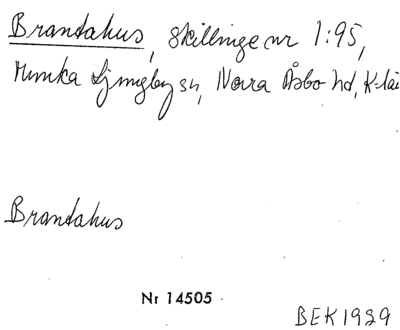 Brandahus, Skillinge nr 1:95,
Munka Ljungby sn, Norra Åsbo hd, K-lä
Brandahus
Nr 14505
BEK1939